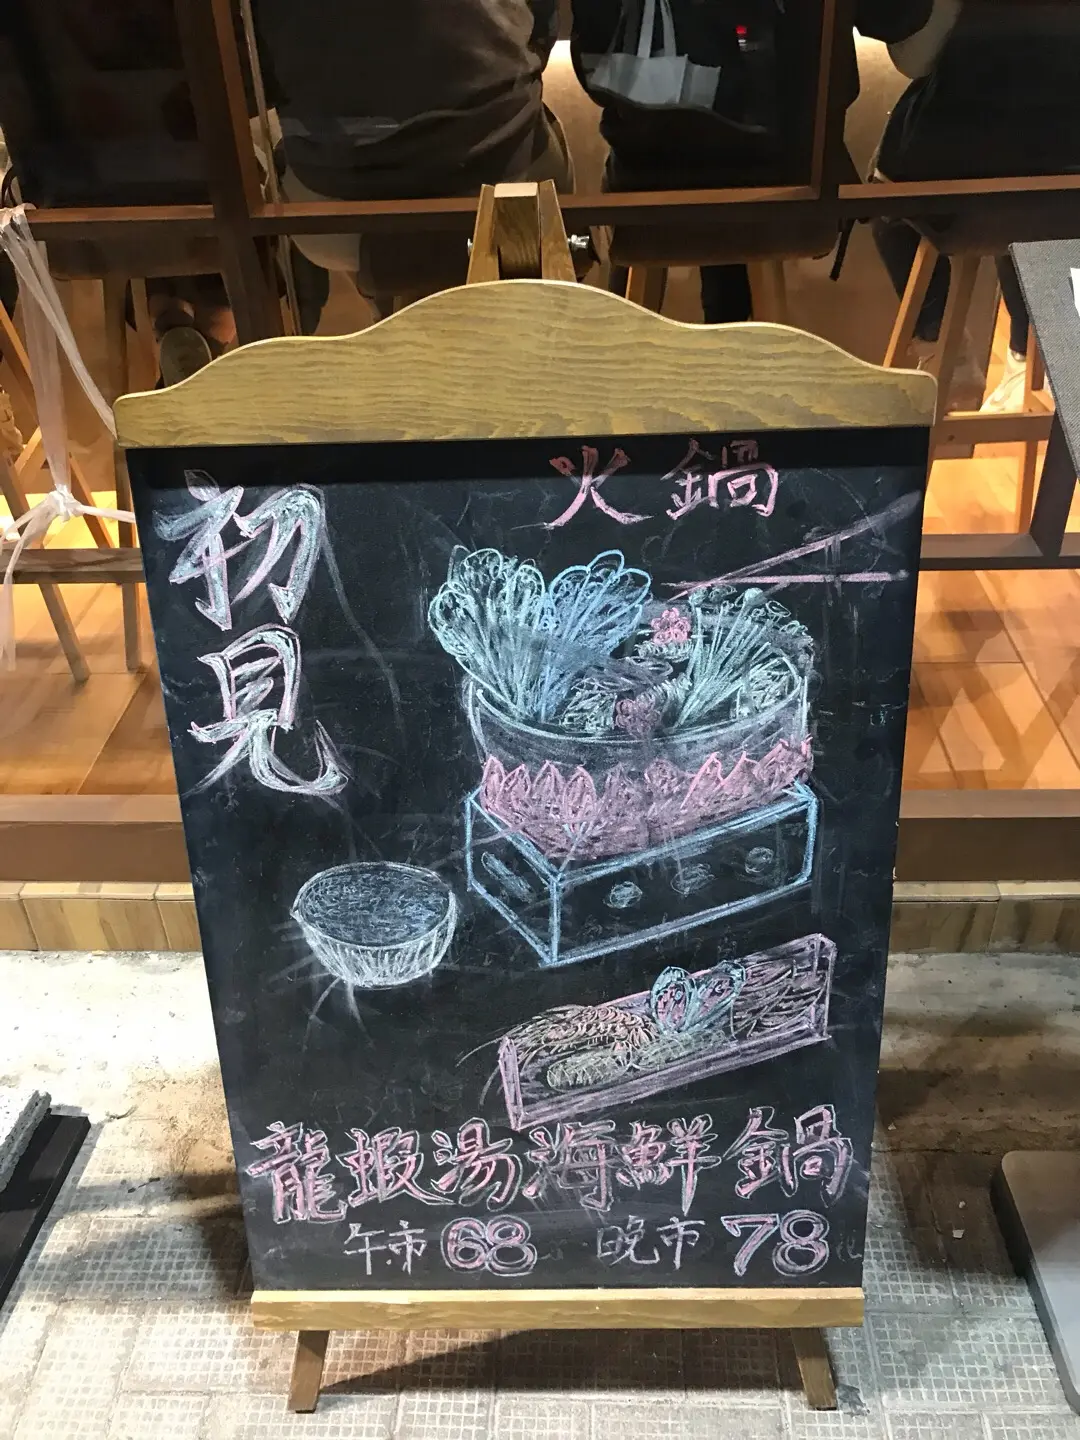 火鍋
初見
龍蝦湯海鮮鍋
午市68 晚市78